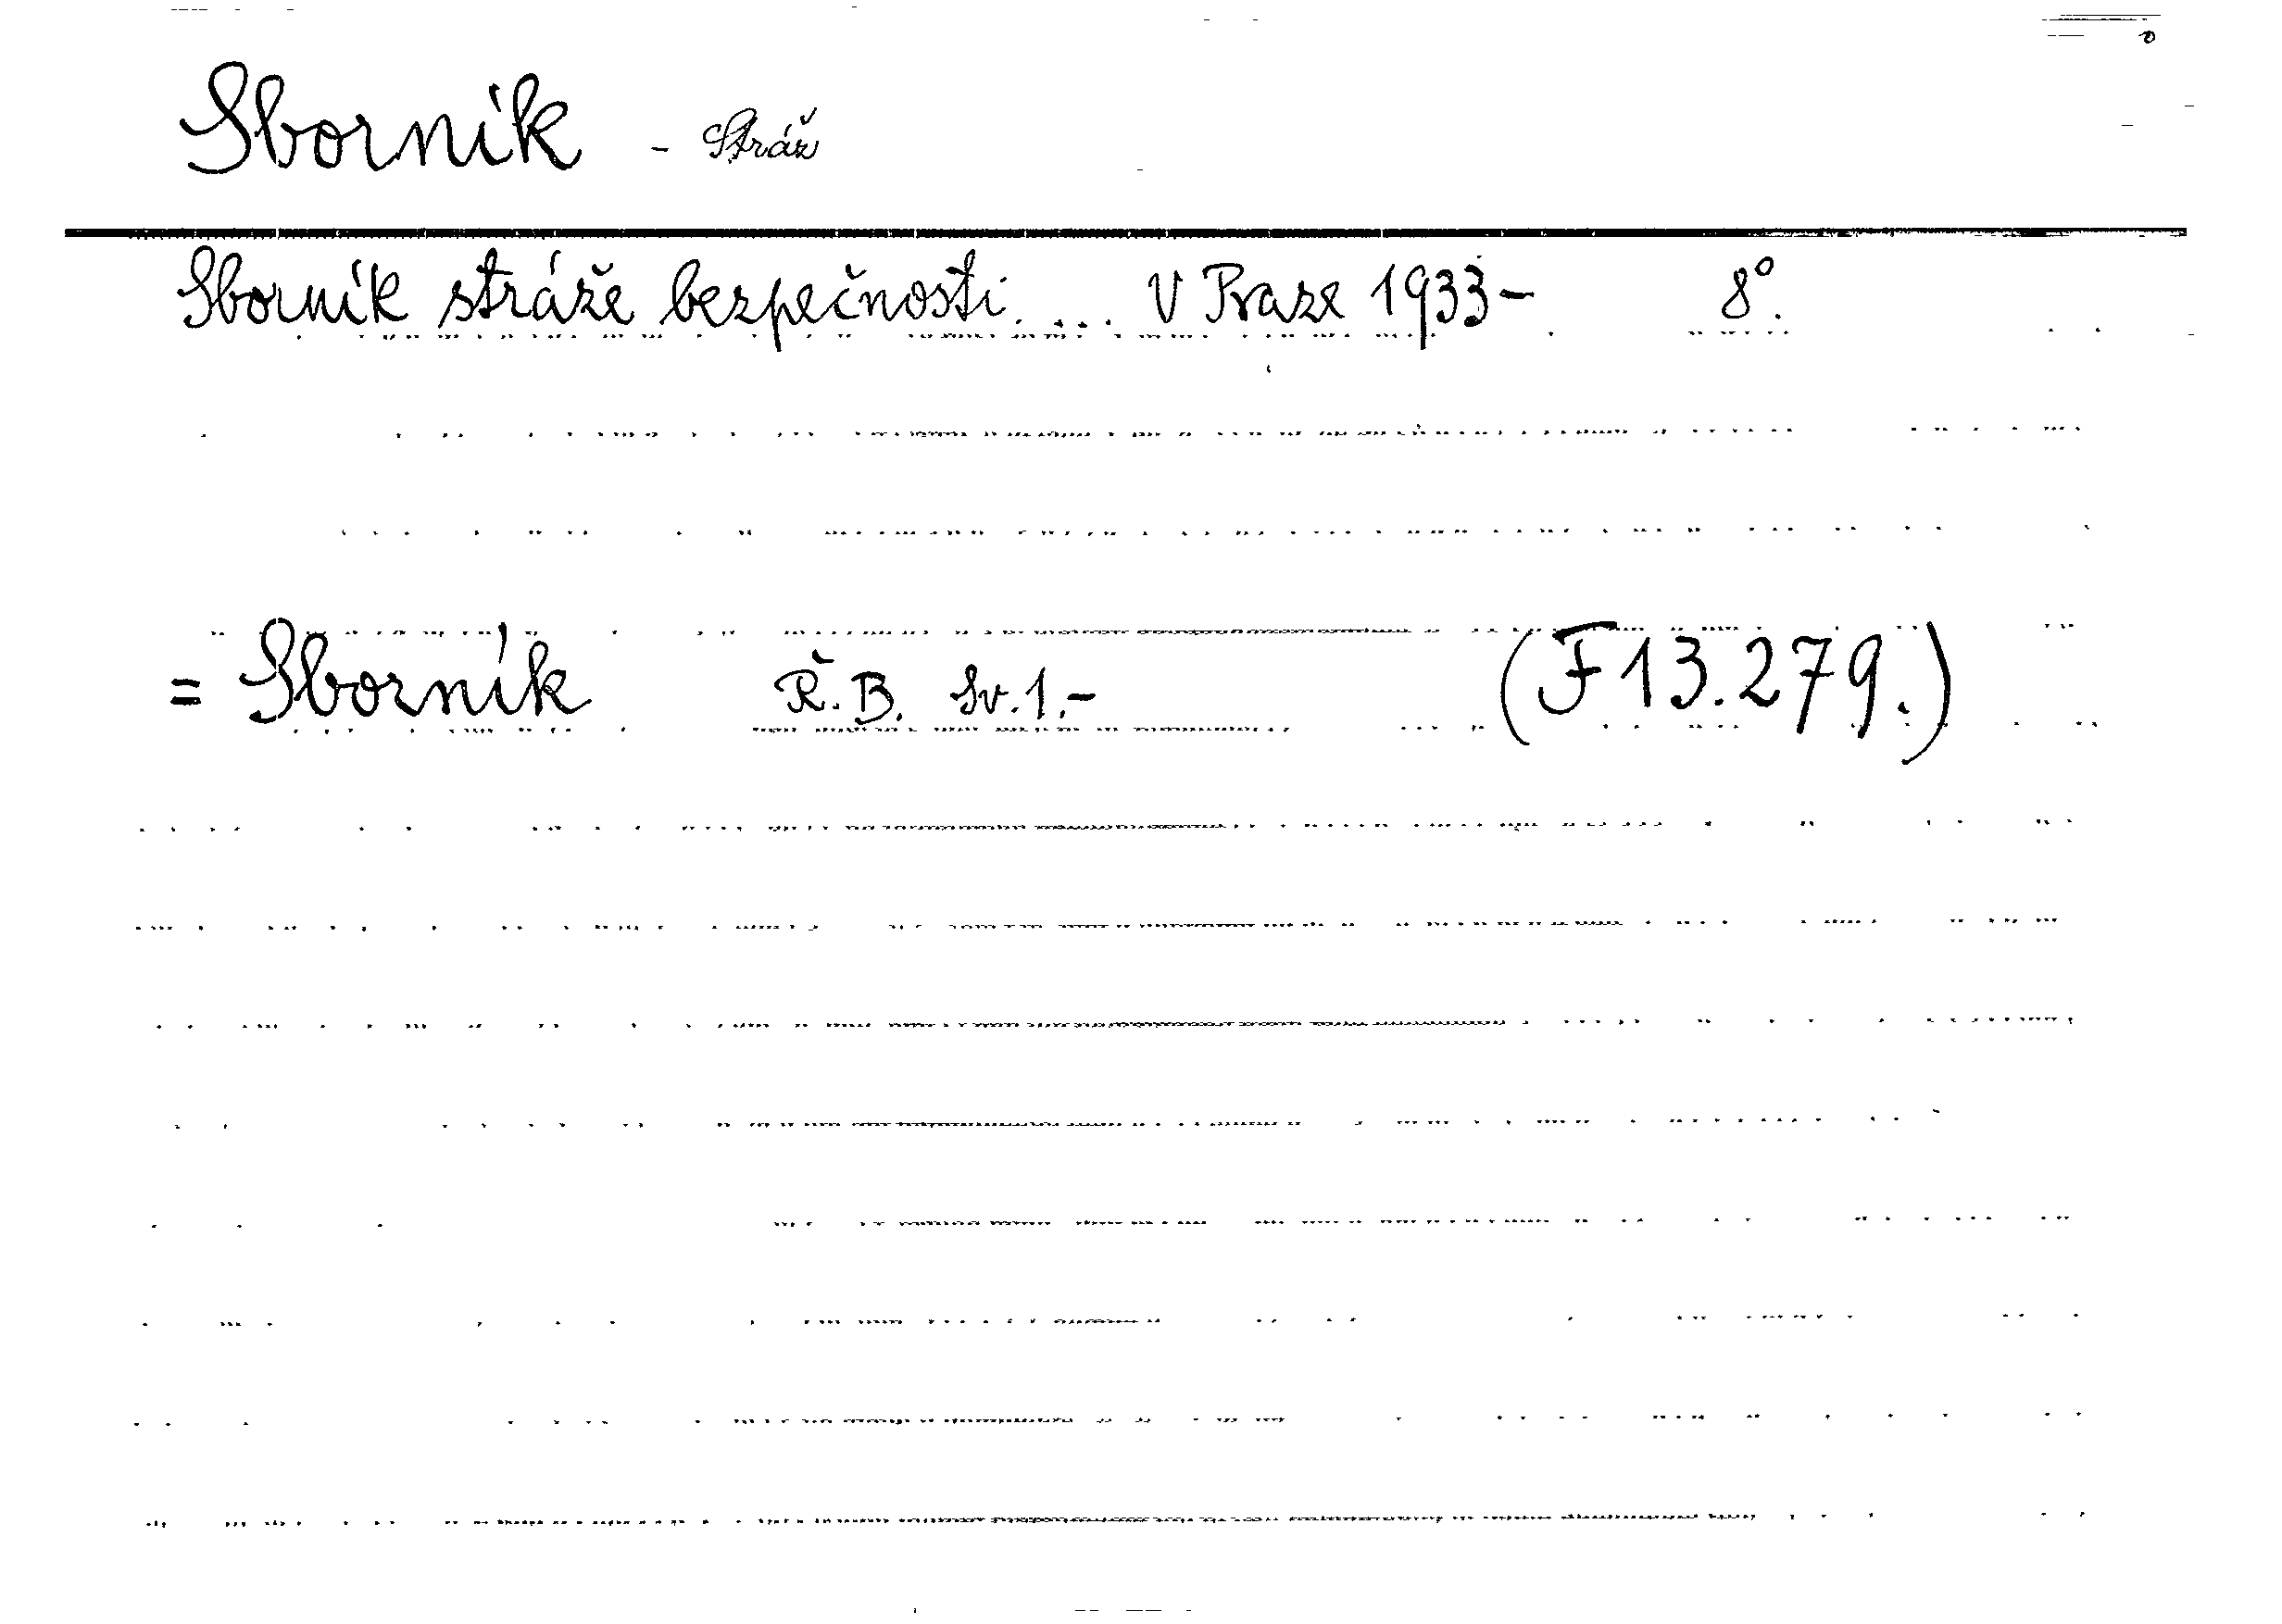 Sborník - Stráž
Sborník stráže bezpečnosti. ... V Praze 1933- 8°.
= Sborník Ř.B. Sv.1.- (F13.279.)